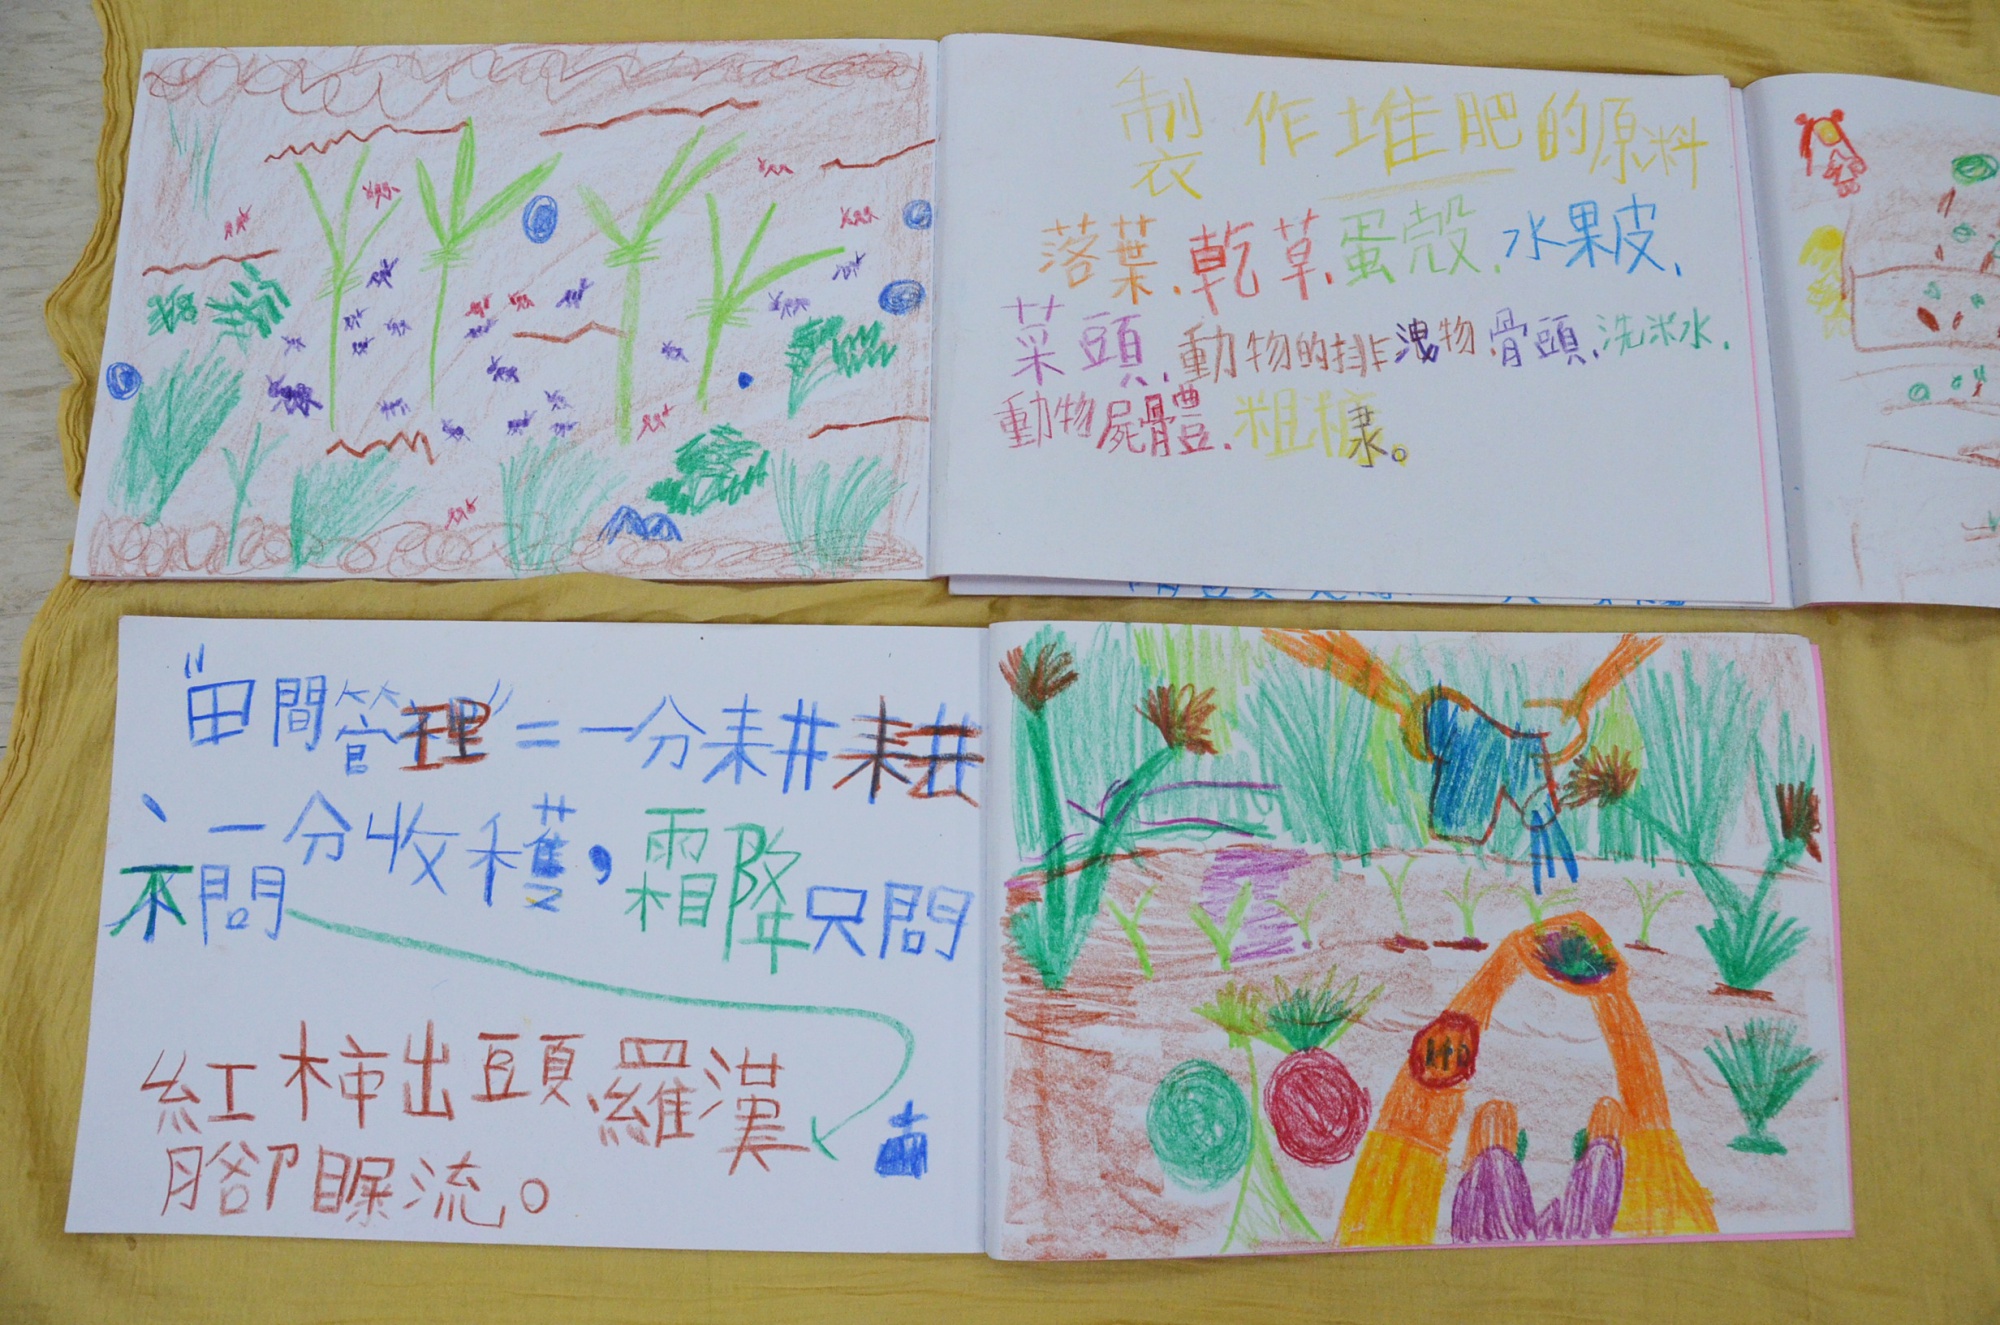 製作堆肥的原料
落葉、乾草、蛋殼、水果皮、
菜頭、動物的排洩物、骨頭、洗米水、
動物屍體、粗糠。
"田間管理"=一分耕耕
、一分收穫,霜降只問
不問
紅柿出頭、羅漢
腳目屎流。